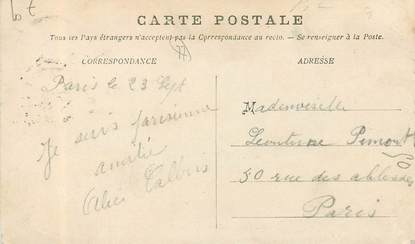 CARTE POSTALE
Tous les Pays étrangers n'acceptent pas la Correspondance au recto. — Se renseigner à la Poste.
CORRESPONDANCE
ADRESSE
Paris le 23 Sept
Je suis parisienne
amitié
Mademoiselle
Léontine
50 rue des
Paris